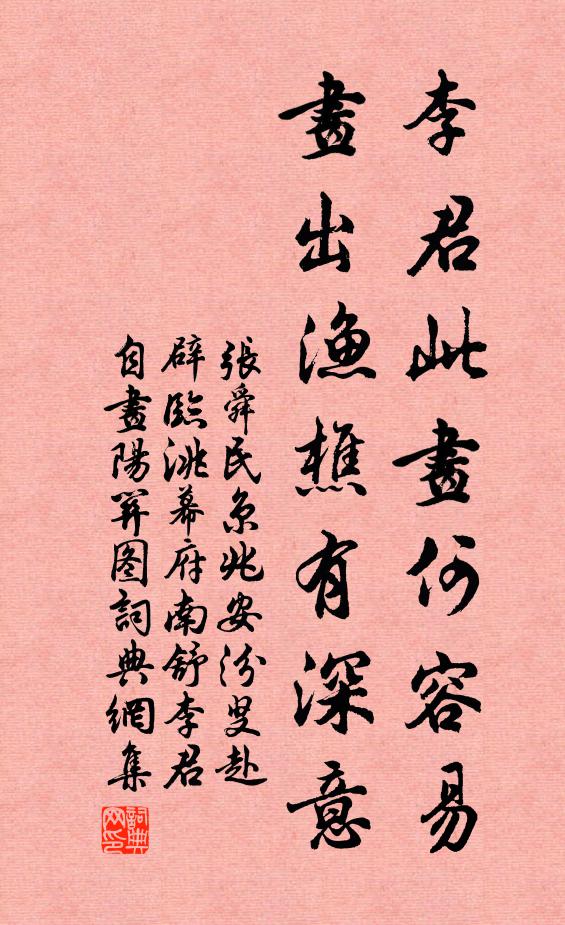 李君此畫何容易
畫出漁樵有深意
張舜民京兆安汾叟赴
辟臨洮幕府南舒李君
自畫陽關图詞典網集
詞典网印